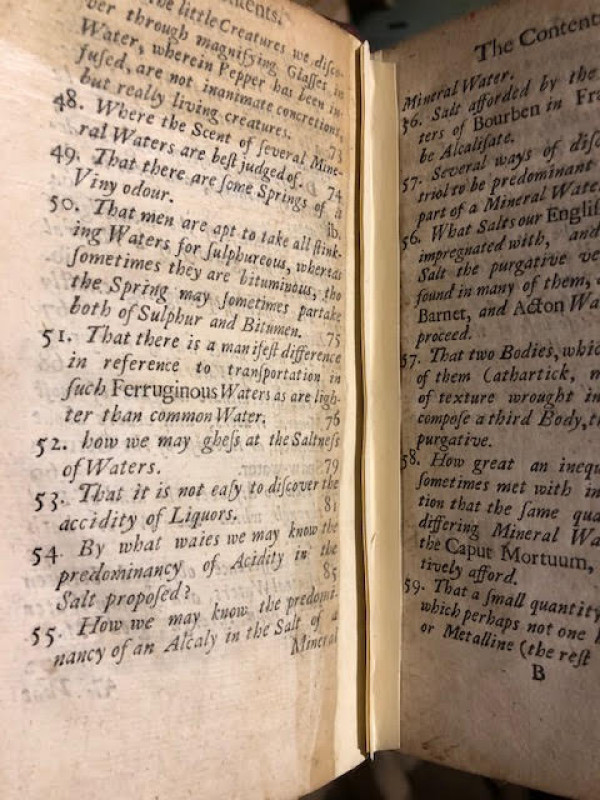 ntents.
The little Creatures we diſco-
ver through magnifying Glaſſes in
Water, wherein Pepper has been in-
fuſed, are not inanimate concretions,
but really living creatures. 73
48. Where the Scent of ſeveral Mine-
ral Waters are beſt judged of. 74
49. That there are ſome Springs of a
Viny odour. ib.
50. That men are apt to take all ſtink-
ing Waters for ſulphureous, whereas
ſometimes they are bituminous, tho
the Spring may ſometimes partake
both of Sulphur and Bitumen. 75
51. That there is a manifeſt difference
in reference to tranſportation in
ſuch Ferruginous Waters as are ligh-
ter than common Water. 76
52. how we may gheſs at the Saltneſs
of Waters. 79
53. That it is not eaſy to diſcover the
accidity of Liquors. 81
54. By what waies we may know the
predominancy of Acidity in the
Salt propoſed? 85
55. How we may know the predomi-
nancy of an Alcaly in the Salt of a
Mineral
The Content
Mineral Water.
56. Salt afforded by the
ters of Bourben in Fra
be Alcaliſate.
57. Several ways of diſc
triol to be predominant
part of a Mineral Wate
56. What Salts our Engliſ
impregnated with, and
Salt the purgative ve
found in many of them,
Barnet, and Acton Wa
proceed.
57. That two Bodies, whic
of them Cathartick, m
of texture wrought in
compoſe a third Body, t
purgative.
58. How great an inequ
ſometimes met with in
tion that the ſame qua
differing Mineral Wa
the Caput Mortuum,
tively afford.
59. That a ſmall quantity
which perhaps not one
or Metalline (the reſt
B